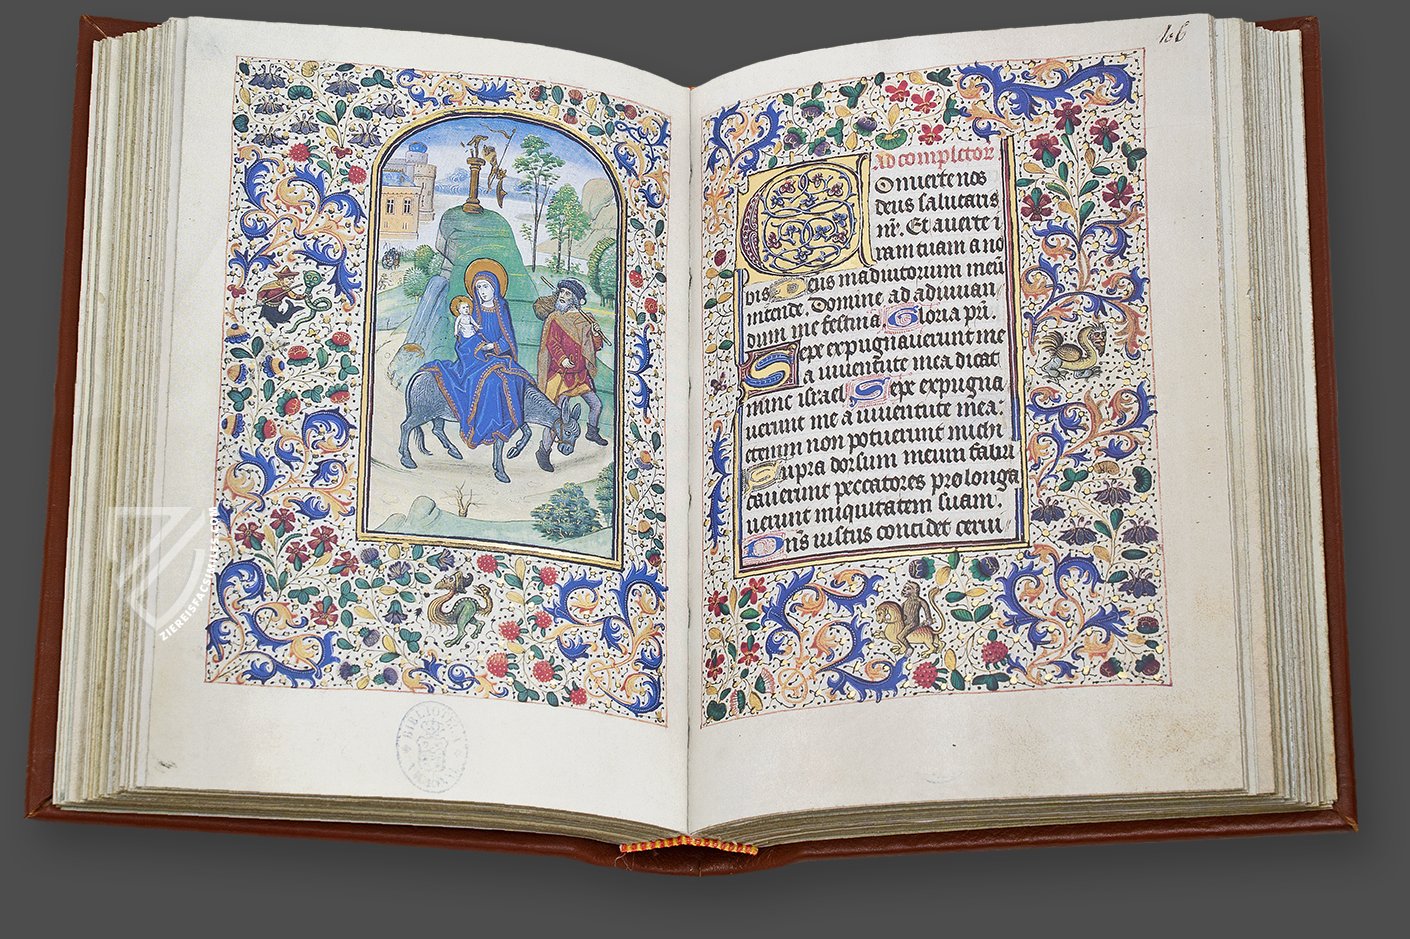 106
Ad completor.
Conuerte nos
deus salutaris
nr̄. Et auerte i
ram tuam a no
bis. Deus in adiutorium meū
intende. Domine ad adiuuan
dum me festina. Gloria pri.
Sepe expugnauerunt me
a iuuentute mea dicat
nunc israel. Sepe expugna
uerunt me a iuuentute mea:
etenim non potuerunt michi
Supra dorsum meum fabri
cauerunt peccatores prolonga
uerunt iniquitatem suam.
Dn̄s iustus concidet cerui
BIBLIOTECA
ZIEREISFACSIMILES.COM